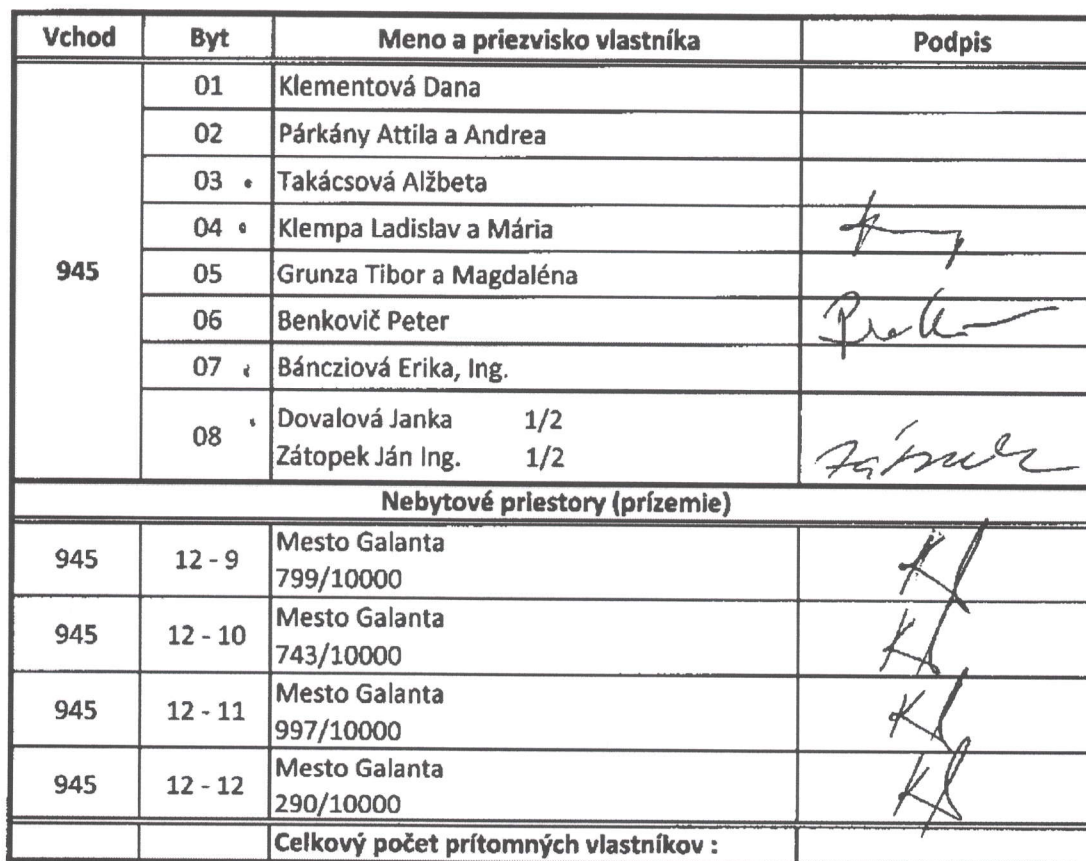 Vchod Byt Meno a priezvisko vlastníka Podpis
945
01 Klementová Dana
02 Párkány Attila a Andrea
03 Takácsová Alžbeta
04 Klempa Ladislav a Mária
05 Grunza Tibor a Magdaléna
06 Benkovič Peter
07 Báncziová Erika, Ing.
08 Dovalová Janka 1/2
Zátopek Ján Ing. 1/2
Nebytové priestory (prízemie)
945 12 - 9 Mesto Galanta
799/10000
945 12 - 10 Mesto Galanta
743/10000
945 12 - 11 Mesto Galanta
997/10000
945 12 - 12 Mesto Galanta
290/10000
Celkový počet prítomných vlastníkov :